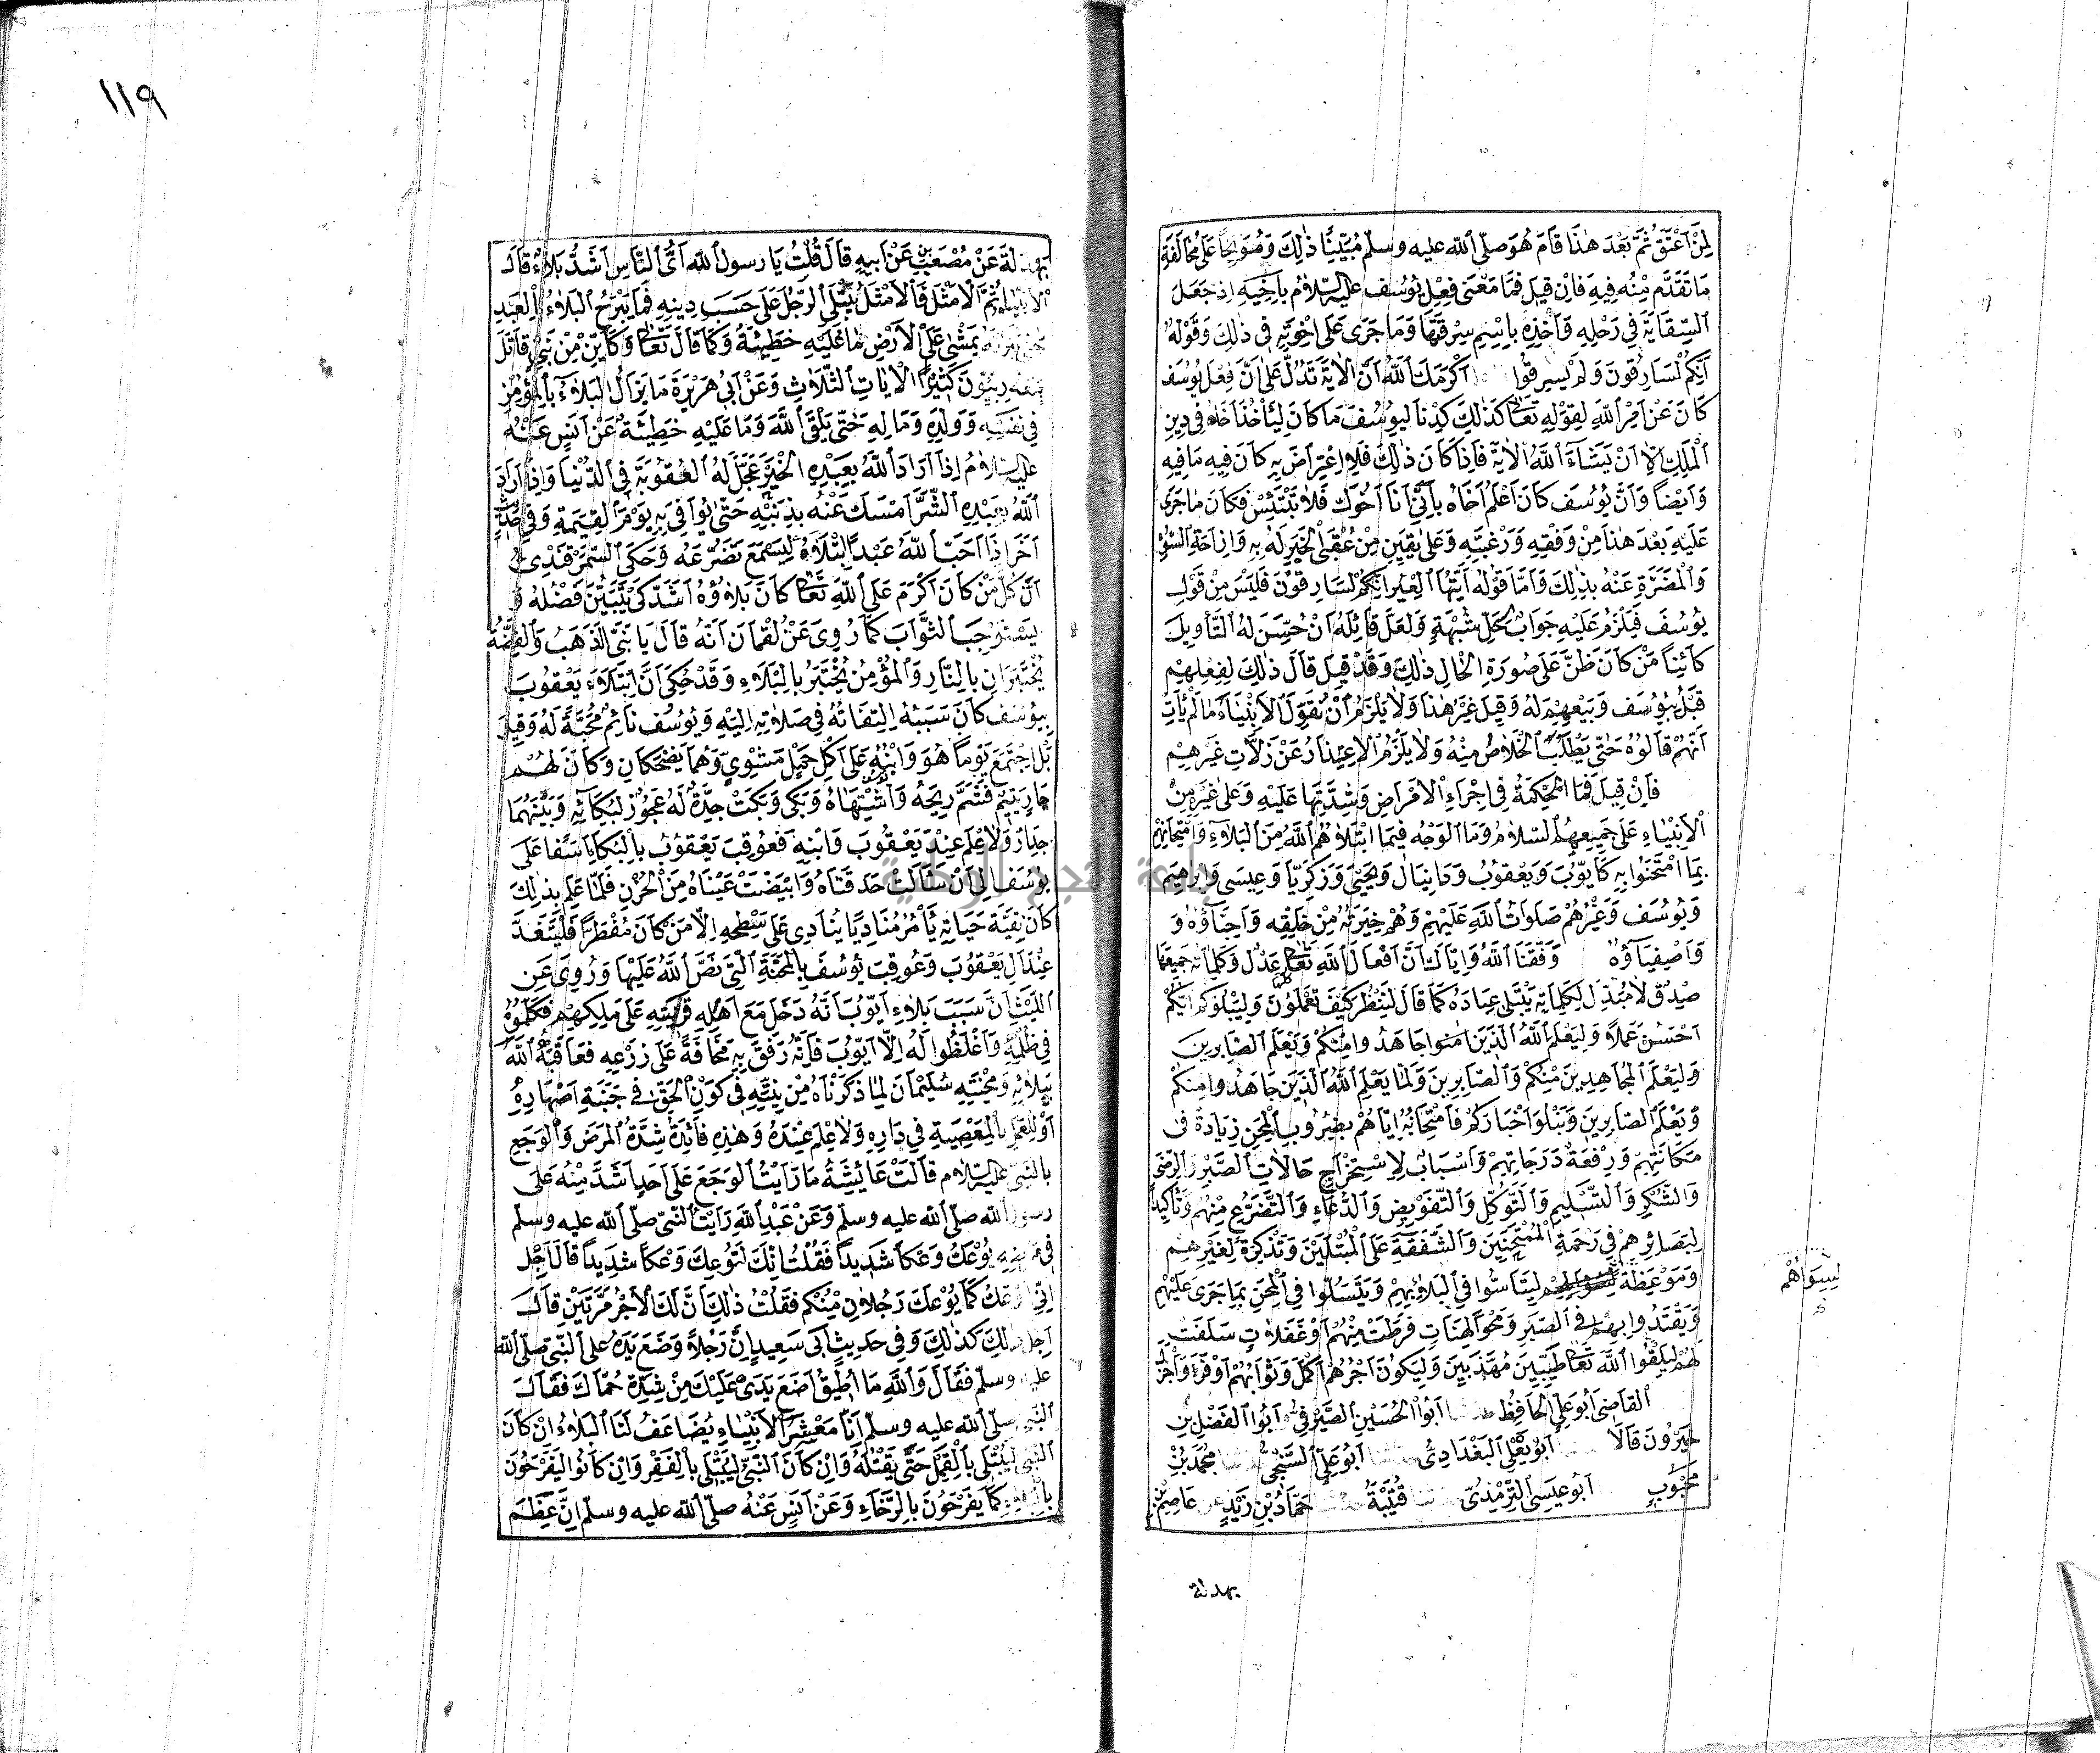 لِمَنْ اَعْتَقَ ثُمَّ بَعْدَ هٰذَا قَامَ هُوَ صلّى الله عليه وسلّم مُبَيِّنًا ذٰلِكَ وَمُوَبِّخًا عَلَى مُخَالَفَةِ
مَا تَقَدَّمَ مِنْهُ فِيهِ فَاِنْ قِيلَ فَمَا مَعْنَى فِعْلِ يُوسُفَ عليه السّلام بِاَخِيهِ اِذْ جَعَلَ
السِّقَايَةَ فِي رَحْلِهِ وَاَخْذِهِ بِاِسْمِ سِرْقَتِهَا وَمَا جَرَى عَلَى اِخْوَتِهِ فِي ذٰلِكَ وَقَوْلِهِ
اِنَّكُمْ لَسَارِقُونَ وَلَمْ يَسْرِقُوا اَكْرَمَكَ اللّٰهُ اَنَّ الْاٰيَةَ تَدُلُّ عَلَى اَنَّ فِعْلَ يُوسُفَ
كَانَ عَنْ اَمْرِ اللّٰهِ لِقَوْلِهِ تَعَالٰى كَذٰلِكَ كِدْنَا لِيُوسُفَ مَا كَانَ لِيَأْخُذَ اَخَاهُ فِي دِينِ
الْمَلِكِ اِلَّا اَنْ يَشَاءَ اللّٰهُ الْاٰيَةَ فَاِذَا كَانَ ذٰلِكَ فَلَا اعْتِرَاضَ بِهِ كَانَ فِيهِ مَا فِيهِ
وَاَيْضًا وَاَنَّ يُوسُفَ كَانَ اَعْلَمَ اَخَاهُ بِاَنِّي اَنَا اَخُوكَ فَلَا تَبْتَئِسْ فَكَانَ مَا جَرَى
عَلَيْهِ بَعْدَ هٰذَا مِنْ وَفْقِهِ وَرَغْبَتِهِ وَعَلٰى يَقِينٍ مِنْ عُقْبَى الْخَيْرِ لَهُ بِهِ وَاِزَاحَةِ السُّوءِ
وَالْمَضَرَّةِ عَنْهُ بِذٰلِكَ وَاَمَّا قَوْلُهُ اَيَّتُهَا الْعِيرُ اِنَّكُمْ لَسَارِقُونَ فَلَيْسَ مِنْ قَوْلِ
يُوسُفَ فَيَلْزَمُ عَلَيْهِ جَوَابٌ يَحُلُّ شُبْهَةً وَلَعَلَّ قَائِلَهُ اَنْ حُسِّنَ لَهُ التَّأْوِيلَ
كَائِنًا مَنْ كَانَ ظَنَّ عَلَى صُورَةِ الْحَالِ ذٰلِكَ وَقَدْ قِيلَ قَالَ ذٰلِكَ لِفِعْلِهِمْ
قَبْلُ بِيُوسُفَ وَبَيْعِهِمْ لَهُ وَقِيلَ غَيْرُ هٰذَا وَلَا يَلْزَمُ اَنْ نُقَوِّلَ الْاَنْبِيَاءَ مَا لَمْ يَأْتِ
اَنَّهُمْ قَالُوهُ حَتّٰى يُطْلَبَ الْخَلَاصُ مِنْهُ وَلَا يَلْزَمُ الْاِعْتِذَارُ عَنْ زَلَّاتِ غَيْرِهِمْ
فَاِنْ قِيلَ فَمَا الْحِكْمَةُ فِي اِجْرَاءِ الْاَمْرَاضِ وَشِدَّتِهَا عَلَيْهِ وَعَلٰى غَيْرِهِ مِنَ
الْاَنْبِيَاءِ عَلَى جَمِيعِهِمُ السَّلَامُ وَمَا الْوَجْهُ فِيمَا ابْتَلَاهُمُ اللّٰهُ مِنَ الْبَلَاءِ وَامْتِحَانِهِمْ
بِمَا امْتُحِنُوا بِهِ كَاَيُّوبَ وَيَعْقُوبَ وَدَانِيَالَ وَيَحْيٰى وَزَكَرِيَّا وَعِيسٰى وَاِبْرٰهِيمَ
وَيُوسُفَ وَغَيْرِهِمْ صَلَوَاتُ اللّٰهِ عَلَيْهِمْ وَهُمْ خِيَرَتُهُ مِنْ خَلْقِهِ وَاَحِبَّاؤُهُ وَ
وَاَصْفِيَاؤُهُ وَفَّقَنَا اللّٰهُ وَاِيَّاكَ اَنَّ اَفْعَالَ اللّٰهِ تَعَالٰى عَدْلٌ وَكَلِمَاتِهِ جَمِيعَهَا
صِدْقٌ لَا مُبَدِّلَ لِكَلِمَاتِهِ يَبْتَلِي عِبَادَهُ كَمَا قَالَ لِنَنْظُرَ كَيْفَ تَعْمَلُونَ وَلِيَبْلُوَكُمْ اَيُّكُمْ
اَحْسَنُ عَمَلًا وَلِيَعْلَمَ اللّٰهُ الَّذِينَ اٰمَنُوا جَاهَدُوا مِنْكُمْ وَيَعْلَمَ الصَّابِرِينَ
وَلِيَعْلَمَ الْمُجَاهِدِينَ مِنْكُمْ وَالصَّابِرِينَ وَلَمَّا يَعْلَمِ اللّٰهُ الَّذِينَ جَاهَدُوا مِنْكُمْ
وَيَعْلَمَ الصَّابِرِينَ وَنَبْلُوَ اَخْبَارَكُمْ فَامْتِحَانُهُ اِيَّاهُمْ بِضُرُوبِ الْمِحَنِ زِيَادَةٌ فِي
مَكَانَتِهِمْ وَرِفْعَةٌ دَرَجَاتِهِمْ وَاَسْبَابٌ لِاِسْتِخْرَاجِ حَالَاتِ الصَّبْرِ وَالرِّضٰى
وَالشُّكْرِ وَالتَّسْلِيمِ وَالتَّوَكُّلِ وَالتَّفْوِيضِ وَالدُّعَاءِ وَالتَّضَرُّعِ مِنْهُمْ وَتَأْكِيدًا
لِبَصَائِرِهِمْ فِي رَحْمَةِ الْمُمْتَحَنِينَ وَالشَّفَقَةِ عَلَى الْمُبْتَلَيْنَ وَتَذْكِرَةً لِغَيْرِهِمْ
وَمَوْعِظَةً لِيَتَاَسَّوْا فِي الْبَلَاءِ بِهِمْ وَيَتَسَلَّوْا فِي الْمِحَنِ بِمَا جَرٰى عَلَيْهِمْ
لِسِوَاهُمْ
وَيَقْتَدُوا بِهِمْ فِي الصَّبْرِ وَمَحْوَ الْهَنَاتِ فَرَطَتْ مِنْهُمْ اَوْ غَفَلَاتٍ سَلَفَتْ
لَهُمْ لِيَلْقَوُا اللّٰهَ تَعَالٰى طَيِّبِينَ مُهَذَّبِينَ وَلِيَكُونَ اَجْرُهُمْ اَكْمَلَ وَثَوَابُهُمْ اَوْفَرَ وَاَجْزَلَ
الْقَاضِي اَبُو عَلِيٍّ الْحَافِظُ اَبُو الْحُسَيْنِ الصَّيْرَفِيُّ اَبُو الْفَضْلِ بْنِ
خَيْرُونَ قَالَا اَبُو يَعْلَى الْبَغْدَادِيُّ اَبُو عَلِيٍّ السِّنْجِيُّ مُحَمَّدُ بْنُ
مَحْبُوبٍ اَبُو عِيسَى التِّرْمِذِيُّ قُتَيْبَةُ حَمَّادُ بْنُ زَيْدٍ عَاصِمِ بْنِ
بهدلة
١١٩
بَهْدَلَةَ عَنْ مُصْعَبِ بْنِ عَنْ اَبِيهِ قَالَ قُلْتُ يَا رسول الله اَيُّ النَّاسِ اَشَدُّ بَلَاءً قَالَ
الْاَنْبِيَاءُ ثُمَّ الْاَمْثَلُ فَالْاَمْثَلُ يُبْتَلَى الرَّجُلُ عَلَى حَسَبِ دِينِهِ فَمَا يَبْرَحُ الْبَلَاءُ بِالْعَبْدِ
حَتّٰى يَتْرُكَهُ يَمْشِي عَلَى الْاَرْضِ مَا عَلَيْهِ خَطِيئَةٌ وَكَمَا قَالَ تَعَالٰى وَكَاَيِّنْ مِنْ نَبِيٍّ قَاتَلَ
مَعَهُ رِبِّيُّونَ كَثِيرٌ الْاٰيَاتِ الثَّلَاثِ وَعَنْ اَبِي هُرَيْرَةَ مَا يَزَالُ الْبَلَاءُ بِالْمُؤْمِنِ
فِي نَفْسِهِ وَوَلَدِهِ وَمَالِهِ حَتّٰى يَلْقَى اللّٰهَ وَمَا عَلَيْهِ خَطِيئَةٌ عَنْ اَنَسٍ عَنْهُ
عليه السلام اِذَا اَرَادَ اللّٰهُ بِعَبْدِهِ الْخَيْرَ عَجَّلَ لَهُ الْعُقُوبَةَ فِي الدُّنْيَا وَاِذَا اَرَادَ
اللّٰهُ بِعَبْدِهِ الشَّرَّ اَمْسَكَ عَنْهُ بِذَنْبِهِ حَتّٰى يُوَافِيَ بِهِ يَوْمَ الْقِيٰمَةِ وَفِي حَدِيثٍ
اٰخَرَ اِذَا اَحَبَّ اللّٰهُ عَبْدًا ابْتَلَاهُ لِيَسْمَعَ تَضَرُّعَهُ وَحَكَى السَّمَرْقَنْدِيُّ
اَنَّ كُلَّ مَنْ كَانَ اَكْرَمَ عَلَى اللّٰهِ تَعَالٰى كَانَ بَلَاؤُهُ اَشَدَّ كَيْ يَتَبَيَّنَ فَضْلُهُ وَ
يَسْتَوْجِبَ الثَّوَابَ كَمَا رُوِيَ عَنْ لُقْمَانَ اَنَّهُ قَالَ يَا بُنَيَّ الذَّهَبُ وَالْفِضَّةُ
يُخْتَبَرَانِ بِالنَّارِ وَالْمُؤْمِنُ يُخْتَبَرُ بِالْبَلَاءِ وَقَدْ حُكِيَ اَنَّ ابْتِلَاءَ يَعْقُوبَ
بِيُوسُفَ كَانَ سَبَبُهُ الْتِفَاتُهُ فِي صَلَاتِهِ اِلَيْهِ وَيُوسُفُ نَائِمٌ مَحَبَّةً لَهُ وَقِيلَ
بَلِ اجْتَمَعَ يَوْمًا هُوَ وَابْنُهُ عَلَى اَكْلِ حَمَلٍ مَشْوِيٍّ وَهُمَا يَضْحَكَانِ وَكَانَ لَهُمْ
جَارٌ يَتِيمٌ فَشَمَّ رِيحَهُ وَاشْتَهَاهُ وَبَكٰى وَبَكَتْ جَدَّةٌ لَهُ عَجُوزٌ لِبُكَائِهِ وَبَيْنَهُمَا
جِدَارٌ وَلَا عِلْمَ عِنْدَ يَعْقُوبَ وَابْنِهِ فَعُوقِبَ يَعْقُوبُ بِالْبُكَاءِ اَسَفًا عَلَى
يُوسُفَ اِلٰى اَنْ سَالَتْ حَدَقَتَاهُ وَابْيَضَّتْ عَيْنَاهُ مِنَ الْحُزْنِ فَلَمَّا عَلِمَ بِذٰلِكَ
كَانَ بَقِيَّةَ حَيَاتِهِ يَأْمُرُ مُنَادِيًا يُنَادِي عَلَى سَطْحِهِ اَلَا مَنْ كَانَ مُفْطِرًا فَلْيَتَغَدَّ
عِنْدَ اٰلِ يَعْقُوبَ وَعُوقِبَ يُوسُفُ بِالْمِحْنَةِ الَّتِي نَصَّ اللّٰهُ عَلَيْهَا وَرُوِيَ عَنِ
اللَّيْثِ اَنَّ سَبَبَ بَلَاءِ اَيُّوبَ اَنَّهُ دَخَلَ مَعَ اَهْلِ قَرْيَتِهِ عَلَى مَلِكِهِمْ فَكَلَّمُوهُ
فِي ظُلْمِهِ وَاَغْلَظُوا لَهُ اِلَّا اَيُّوبَ فَاِنَّهُ رَفَقَ بِهِ مَخَافَةً عَلَى زَرْعِهِ فَعَاقَبَهُ اللّٰهُ
بِبَلَائِهِ وَمِحْنَتِهِ سُلَيْمَانَ لِمَا ذَكَرْنَاهُ مِنْ نِيَّتِهِ فِي كَوْنِ الْحَقِّ فِي جَنَبَةِ اَصْهَارِهِ
اَوْ لِلْعَمَلِ بِالْمَعْصِيَةِ فِي دَارِهِ وَلَا عِلْمَ عِنْدَهُ وَهٰذِهِ فَائِدَةُ شِدَّةِ الْمَرَضِ وَالْوَجَعِ
بِالنَّبِيِّ عليه السلام قَالَتْ عَائِشَةُ مَا رَاَيْتُ الْوَجَعَ عَلَى اَحَدٍ اَشَدَّ مِنْهُ عَلَى
رسول الله صلّى الله عليه وسلّم وَعَنْ عَبْدِ اللّٰهِ رَاَيْتُ النَّبِيَّ صلّى الله عليه وسلّم
فِي مَرَضِهِ يُوعَكُ وَعْكًا شَدِيدًا فَقُلْتُ اِنَّكَ لَتُوعَكُ وَعْكًا شَدِيدًا قَالَ اَجَلْ
اِنِّي اُوعَكُ كَمَا يُوعَكُ رَجُلَانِ مِنْكُمْ فَقُلْتُ ذٰلِكَ اَنَّ لَكَ الْاَجْرَ مَرَّتَيْنِ قَالَ
اَجَلْ ذٰلِكَ كَذٰلِكَ وَفِي حَدِيثِ اَبِي سَعِيدٍ اِنَّ رَجُلًا وَضَعَ يَدَهُ عَلَى النَّبِيِّ صلّى الله
عليه وسلّم فَقَالَ وَاللّٰهِ مَا اُطِيقُ اَضَعُ يَدِي عَلَيْكَ مِنْ شِدَّةِ حُمَّاكَ فَقَالَ
النَّبِيُّ صلّى الله عليه وسلّم اِنَّا مَعْشَرَ الْاَنْبِيَاءِ يُضَاعَفُ لَنَا الْبَلَاءُ اِنْ كَانَ
النَّبِيُّ لَيُبْتَلٰى بِالْقَمْلِ حَتّٰى يَقْتُلَهُ وَاِنْ كَانَ النَّبِيُّ لَيُبْتَلٰى بِالْفَقْرِ وَاِنْ كَانُوا لَيَفْرَحُونَ
بِالْبَلَاءِ كَمَا يَفْرَحُونَ بِالرَّخَاءِ وَعَنْ اَنَسٍ عَنْهُ صلّى الله عليه وسلّم اِنَّ عِظَمَ
جامعة النجاح الوطنية